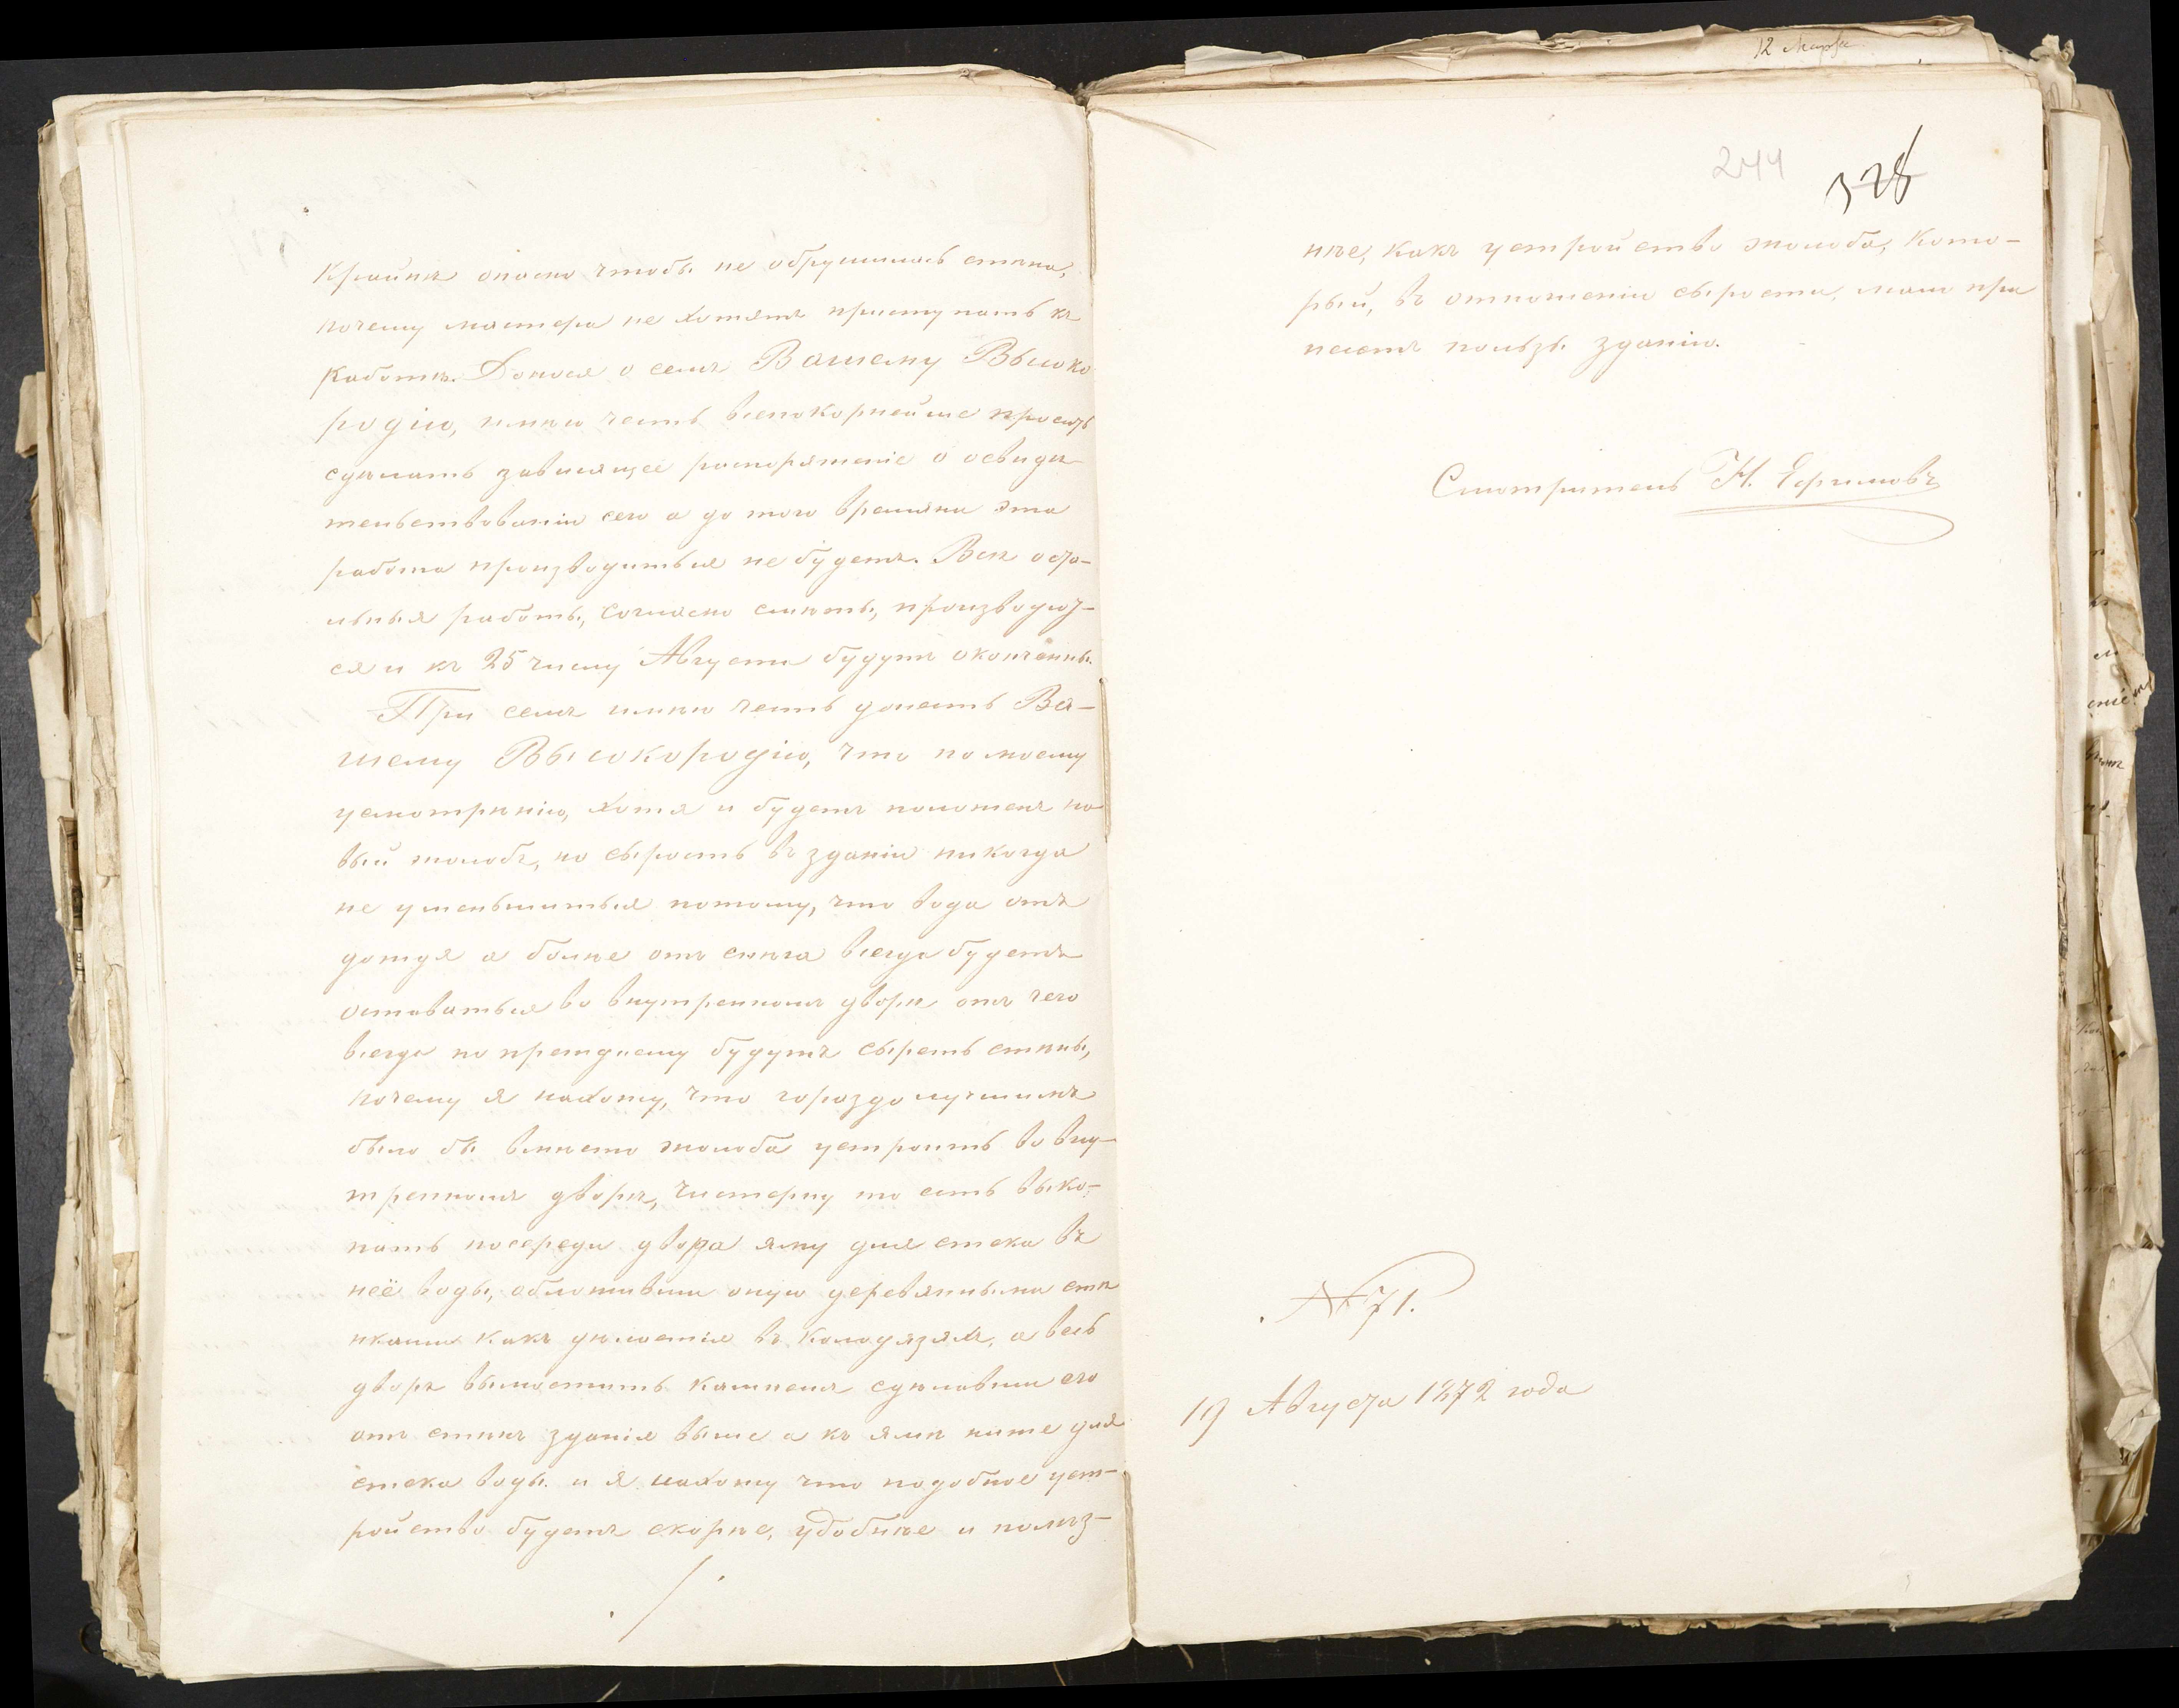 крайнѣ опасно чтобы не обрушилась стѣна,
почему мастера не хотятъ приступать къ
работѣ. Донося о семъ Вашему Высоко
родію, имѣю честь всепокорнейше просить
сдѣлать зависящее распоряженіе о освидѣ-
тельствованіи сего а до того времяни эта
работа производиться не будетъ. Все оста-
льныя работы, согласно смѣты, производют-
ся и къ 25 числу Августа будутъ окончанны.
При семъ имѣю честь донесть Ва-
шему Высокородію, что по моему
усмотрѣнію, хотя и будетъ положенъ но
вый жолобъ, но сырость въ зданіи никогда
не уменьшиться потому, что вода отъ
дождя а болѣе отъ снѣга всегда будетъ
оставаться во внутренномъ дворѣ отъ чего
всегда по прежднему будутъ сыреть стѣны,
почему я нахожу, что гораздо лучшимъ
было бы вмѣсто жолоба устроить во вну-
тренномъ дворѣ, чистерну то есть выко-
пать посереди двора яму для стека въ
неё воды, обложивши оную деревянными стѣ
нками какъ дѣлается въ колодязяхъ, а весь
дворъ вымостить камнемъ сдѣлавши его
отъ стѣнъ зданія выше а къ ямѣ ниже для
стека воды и я нахожу что подобное уст-
ройство будетъ скорѣе, удобнѣе и полѣз-
12 Марта
244
328
нѣе, какъ устройство жолоба, кото-
рый, въ отношеніи сырости, мало при
несетъ пользы зданію.
Смотритель Н. Ефимовъ
№ 71.
19 Августа 1872 года